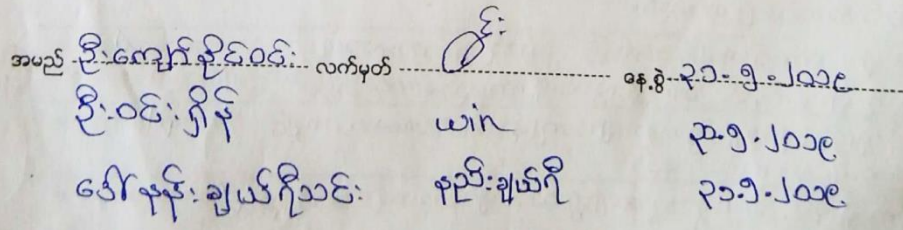 အမည် ဦးကျော်ခိုင်ဝင်း လက်မှတ် နေ့စွဲ ၃၁-၅-၂၀၁၉
ဦးဝင်းရှိန် win ၃၁.၅.၂၀၁၉
ဒေါ်နန်းချယ်ရီသင်း နည်းချယ်ရီ ၃၁.၅.၂၀၁၉